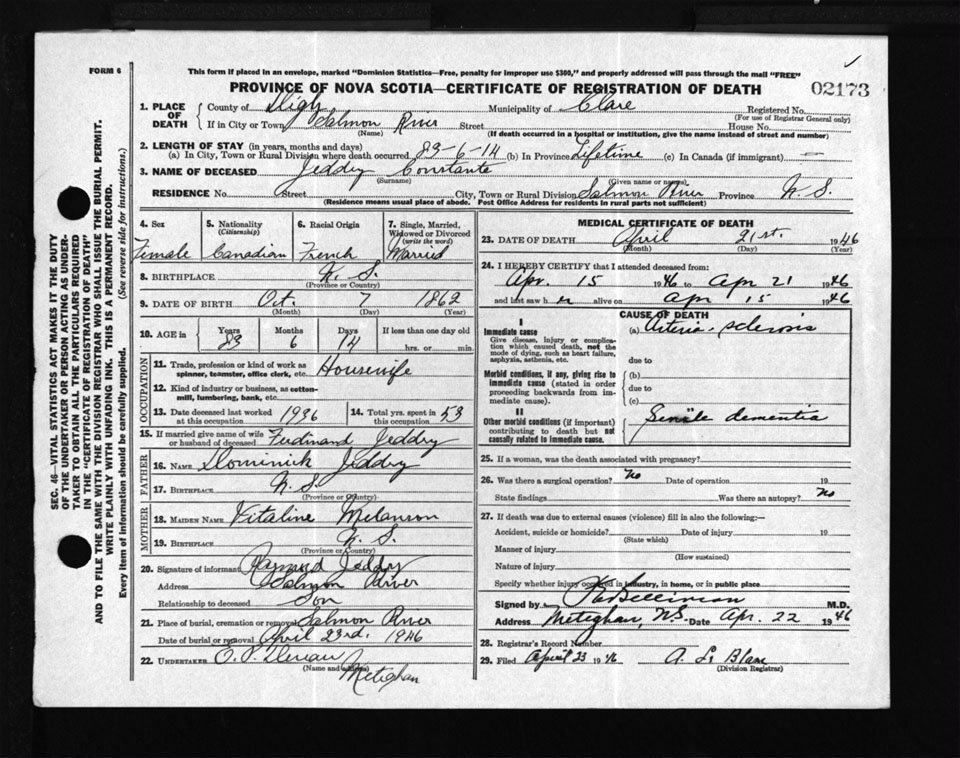 FORM 6
This form if placed in an envelope, marked "Dominion Statistics—Free, penalty for improper use $300," and properly addressed will pass through the mail "FREE"
PROVINCE OF NOVA SCOTIA—CERTIFICATE OF REGISTRATION OF DEATH
02173
1. PLACE OF DEATH County of Digby Municipality of Clare Registered No.
(For use of Registrar General only)
If in City or Town Salmon River Street House No.
(Name) (If death occurred in a hospital or institution, give the name instead of street and number)
2. LENGTH OF STAY (in years, months and days)
(a) In City, Town or Rural Division where death occurred 83-6-14 (b) In Province Lifetime (c) In Canada (if immigrant) —
3. NAME OF DECEASED Jeddry Constante
(Surname) (Given name or names)
RESIDENCE No. Street City, Town or Rural Division Salmon River Province N. S.
(Residence means usual place of abode. Post Office Address for residents in rural parts not sufficient)
4. Sex Female
5. Nationality (Citizenship) Canadian
6. Racial Origin French
7. Single, Married, Widowed or Divorced (write the word) Married
8. BIRTHPLACE N. S.
(Province or Country)
9. DATE OF BIRTH Oct. 7 1862
(Month) (Day) (Year)
10. AGE in Years 83 Months 6 Days 14 If less than one day old hrs. or min.
OCCUPATION
11. Trade, profession or kind of work as spinner, teamster, office clerk, etc. Housewife
12. Kind of industry or business, as cotton-mill, lumbering, bank, etc.
13. Date deceased last worked at this occupation 1936
14. Total yrs. spent in 53
15. If married give name of wife or husband of deceased Ferdinand Jeddry
FATHER
16. NAME Dominick Jeddry
17. BIRTHPLACE N. S.
(Province or Country)
MOTHER
18. MAIDEN NAME Vitaline Melanson
19. BIRTHPLACE N. S.
(Province or Country)
20. Signature of informant Raymond Jeddry
Address Salmon River
Relationship to deceased Son
21. Place of burial, cremation or removal Salmon River
Date of burial or removal April 23rd. 1946
22. UNDERTAKER
(Name and address)
Meteghan
MEDICAL CERTIFICATE OF DEATH
23. DATE OF DEATH April 21st. 1946
(Month) (Day) (Year)
24. I HEREBY CERTIFY that I attended deceased from:
Apr. 15 1946 to Apr 21 1946
and last saw her alive on Apr 15 1946
CAUSE OF DEATH
I
Immediate cause
Give disease, injury or complication which caused death, not the mode of dying, such as heart failure, asphyxia, asthenia, etc.
(a) Arterio-sclerosis
due to
Morbid conditions, if any, giving rise to immediate cause (stated in order proceeding backwards from immediate cause).
(b)
due to
(c)
II
Other morbid conditions (if important) contributing to death but not causally related to immediate cause.
Senile dementia
25. If a woman, was the death associated with pregnancy?
26. Was there a surgical operation? No Date of operation 19
State findings Was there an autopsy? No
27. If death was due to external causes (violence) fill in also the following:—
Accident, suicide or homicide? Date of injury 19
(State which)
Manner of injury
(How sustained)
Nature of injury
Specify whether injury occurred in industry, in home, or in public place
Signed by M.D.
Address Meteghan, N.S. Date Apr. 22 1946
28. Registrar's Record Number
29. Filed April 23 1946 A. L. Blanc
(Division Registrar)
SEC. 46—VITAL STATISTICS ACT MAKES IT THE DUTY
OF THE UNDERTAKER OR PERSON ACTING AS UNDER-
TAKER TO OBTAIN ALL THE PARTICULARS REQUIRED
IN THE "CERTIFICATE OF REGISTRATION OF DEATH"
AND TO FILE THE SAME WITH THE DIVISION REGISTRAR WHO SHALL ISSUE THE BURIAL PERMIT.
WRITE PLAINLY WITH UNFADING INK. THIS IS A PERMANENT RECORD.
Every item of information should be carefully supplied. (See reverse side for instructions.)